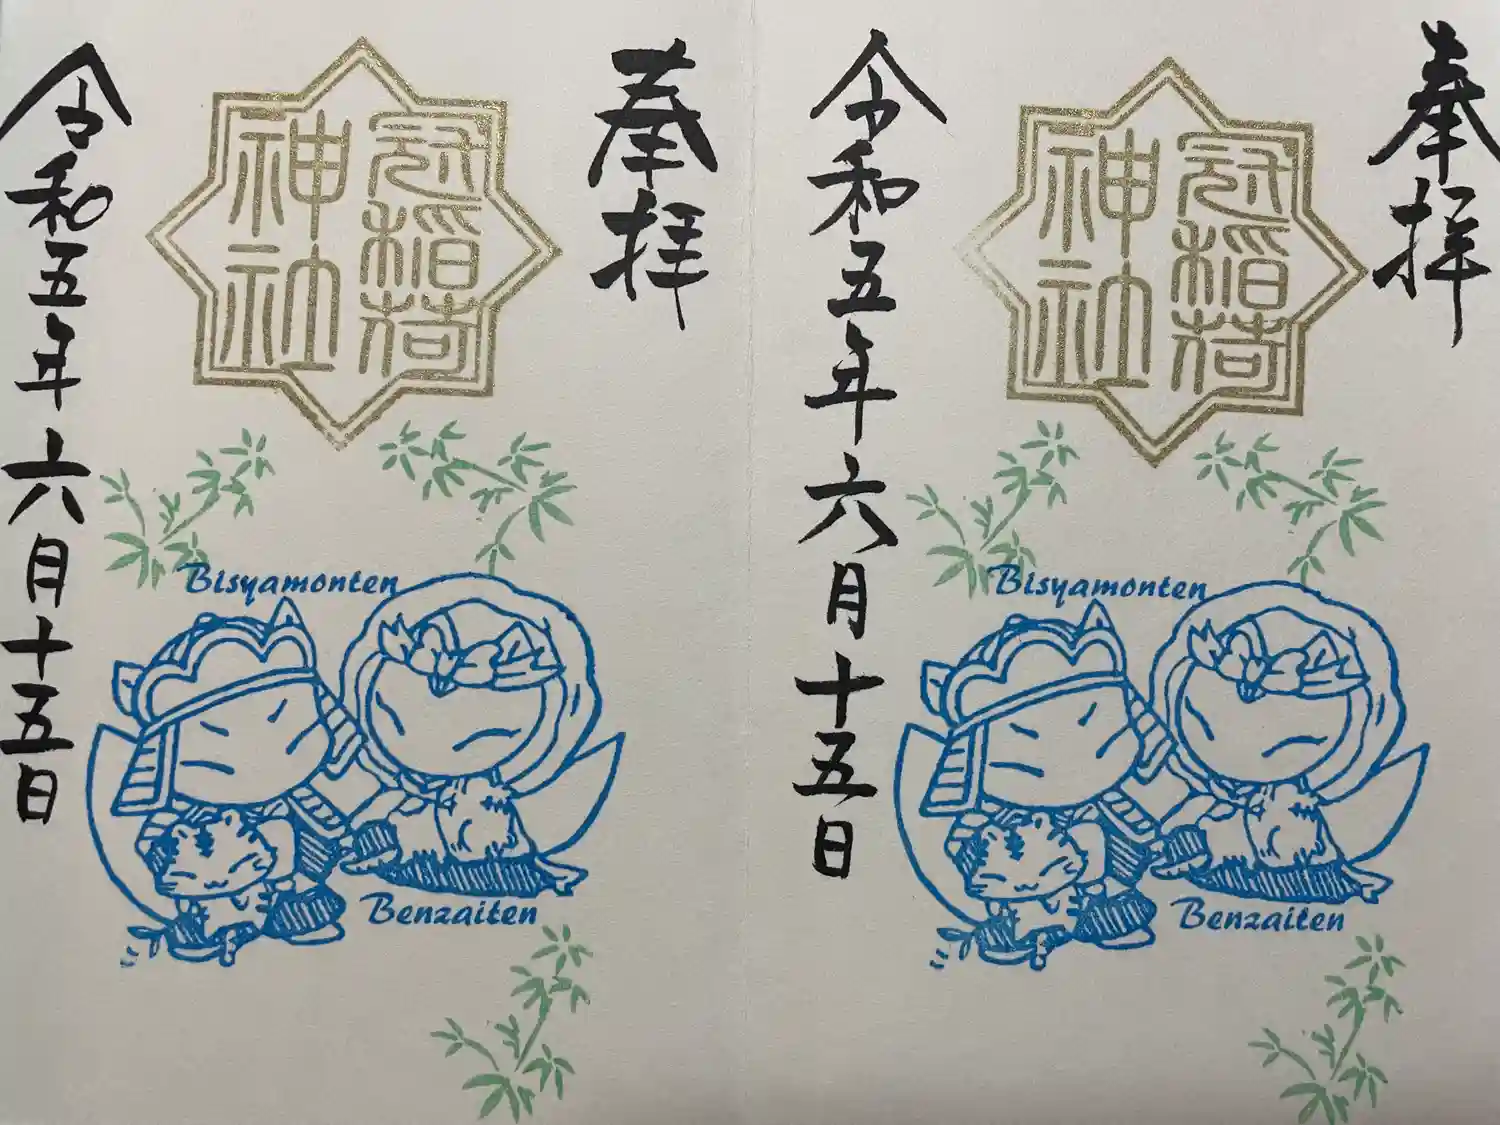 奉拝
冠稲荷
神社
令和五年六月十五日
Bisyamonten
Benzaiten
奉拝
冠稲荷
神社
令和五年六月十五日
Bisyamonten
Benzaiten